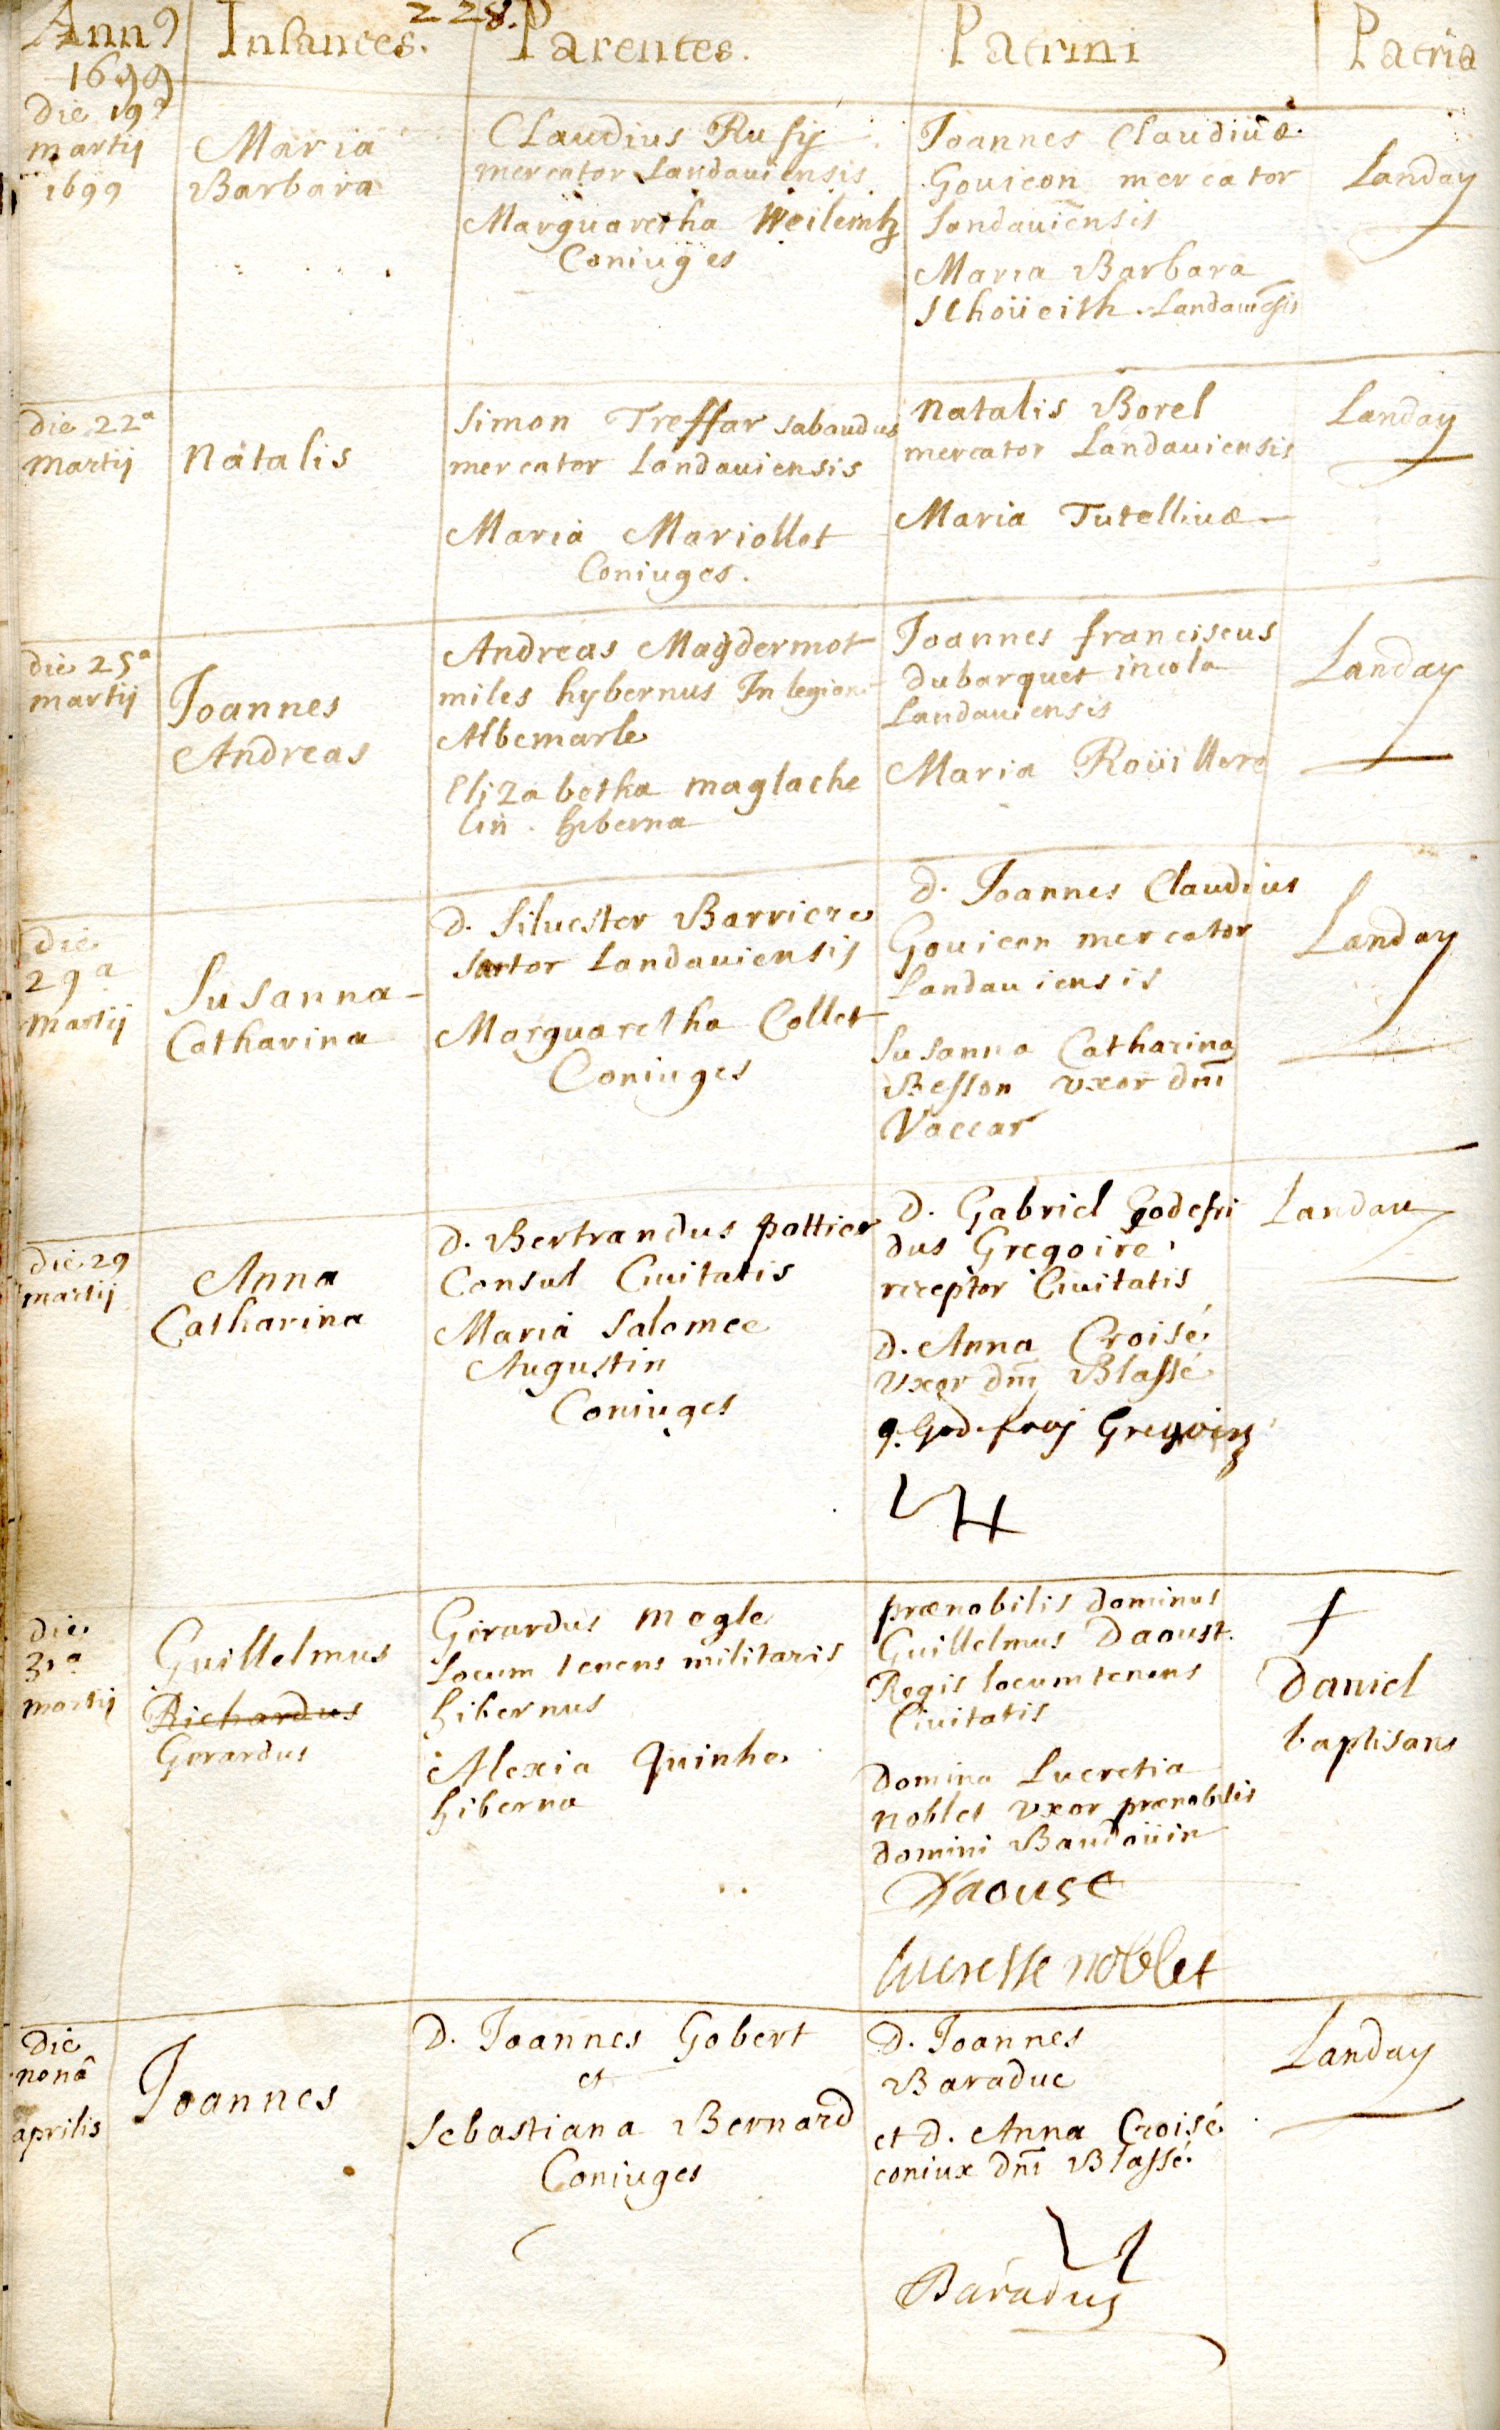 228.
Anno Infantes. Parentes. Patrini Patria
1699
die 19a
martij
1699
Maria
Barbara
Claudius Rusij
mercator Landauiensis
Marguaretha Weilemtz
Coniuges
Joannes Claudius
Gouieon mercator
Landauiensis
Maria Barbara
Landauiensis
Landau
die 22a
Martij
Natalis
Simon Treffar sabaudus
mercator Landauiensis
Maria Mariollet
Coniuges.
Natalis Borel
mercator Landauiensis
Maria
Landau
die 25a
martij
Joannes
Andreas
Andreas Magdermot
miles hybernus In legione
Albemarle
Elizabetha maglache
lin. hiberna
Joannes franciscus
dubarquet incola
Landauiensis
Maria Roüillere
Landau
die
29a
Martij
Susanna-
Catharina
d. Siluester Barriere
sartor Landauiensis
Marguaretha Collet
Coniuges
d. Joannes Claudius
Gouieon mercator
Landauiensis
Susanna Catharina
Besson vxor dni
Vaccar
Landau
die 29
martij
Anna
Catharina
d. Bertrandus pottier
Consul Ciuitatis
Maria Salomee
Augustin
Coniuges
d. Gabriel Godefri
dus Gregoire
receptor Ciuitatis
d. Anna Croisé
vxor dni Blassé
g. Godefroij Gregoire
Landau
die
31a
martij
Guillelmus
Richardus
Gerardus
Girardus megle
Locum tenens militaris
hibernus
Alexia Quinhe
hiberna
prænobilis dominus
Guillelmus Daoust
Regis locumtenens
Ciuitatis
Domina Lucretia
noblet vxor prænobilis
domini Baudoüin
Daoust
lucresse noblet
Daniel
baptisans
Die
nonâ
aprilis
Joannes
D. Joannes Gobert
et
Sebastiana Bernard
Coniuges
D. Joannes
Baraduc
et d. Anna Croisé
coniux dni Blassé
Baraduc
Landau